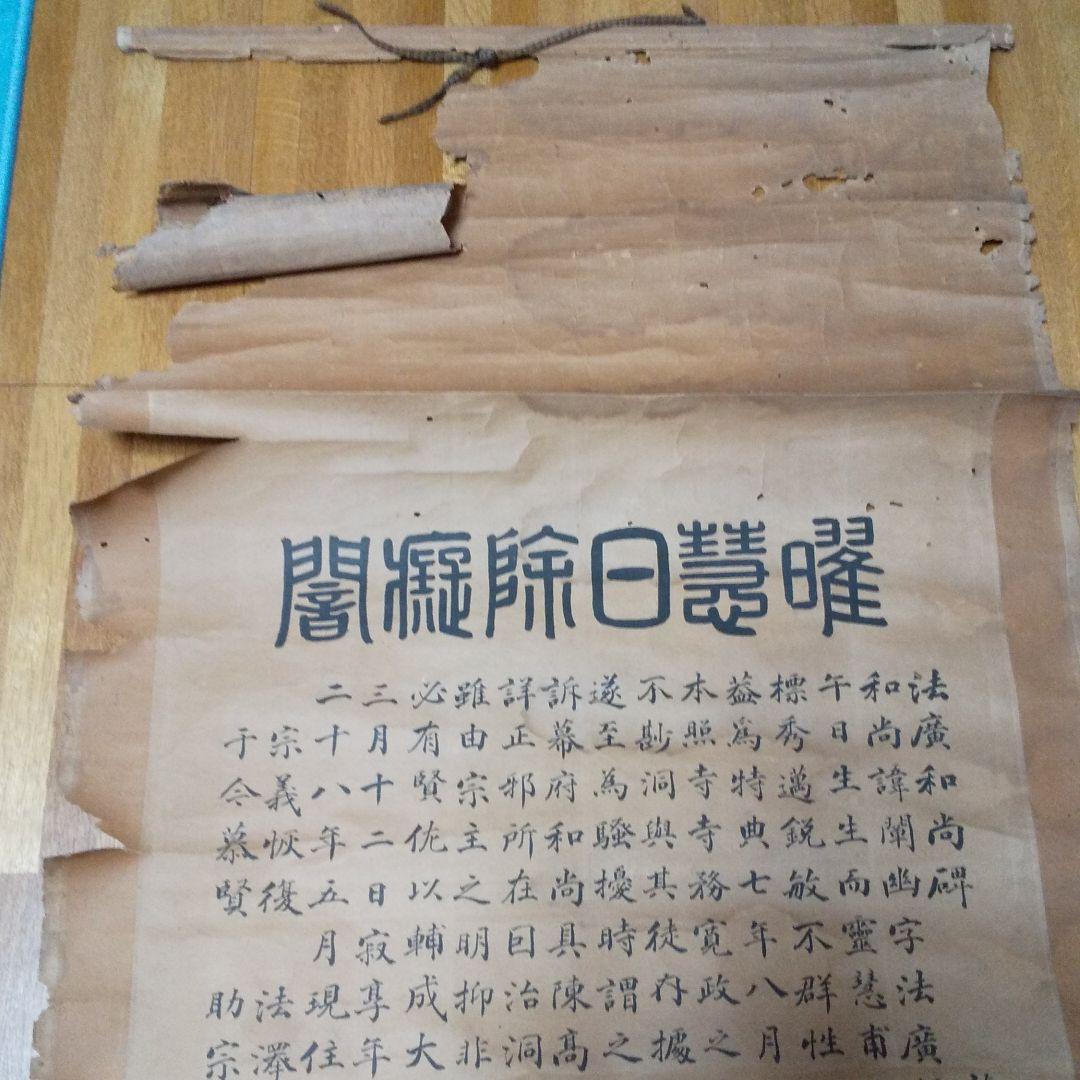 曜慧日除癡闇
法廣和尚碑
和尚諱闡幽字法廣
午日生生而靈慧甫
標秀邁銳敏不群性
益為特典七年八月
本照寺寺務寬政之
不尠洞與其徒存據
遂至為騷擾時謂之
訴幕府和尚具陳高
詳正邪所在因治洞
雖由宗主之明抑非
必有賢佐以輔成大
三月十二日寂享年
二十八年五月現住
宗義恢復 法澤
于今慕賢 助宗